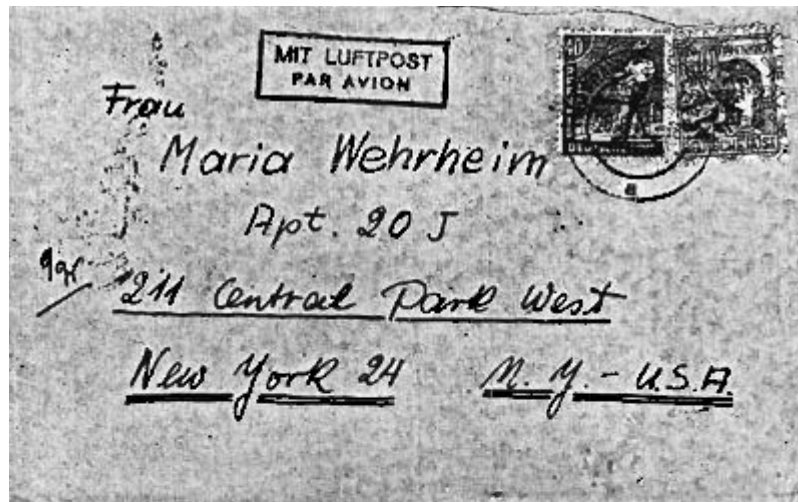 MIT LUFTPOST
PAR AVION
Frau
Maria Wehrheim
Apt. 20 J
211 Central Park West
New York 24 N.Y. - U.S.A.